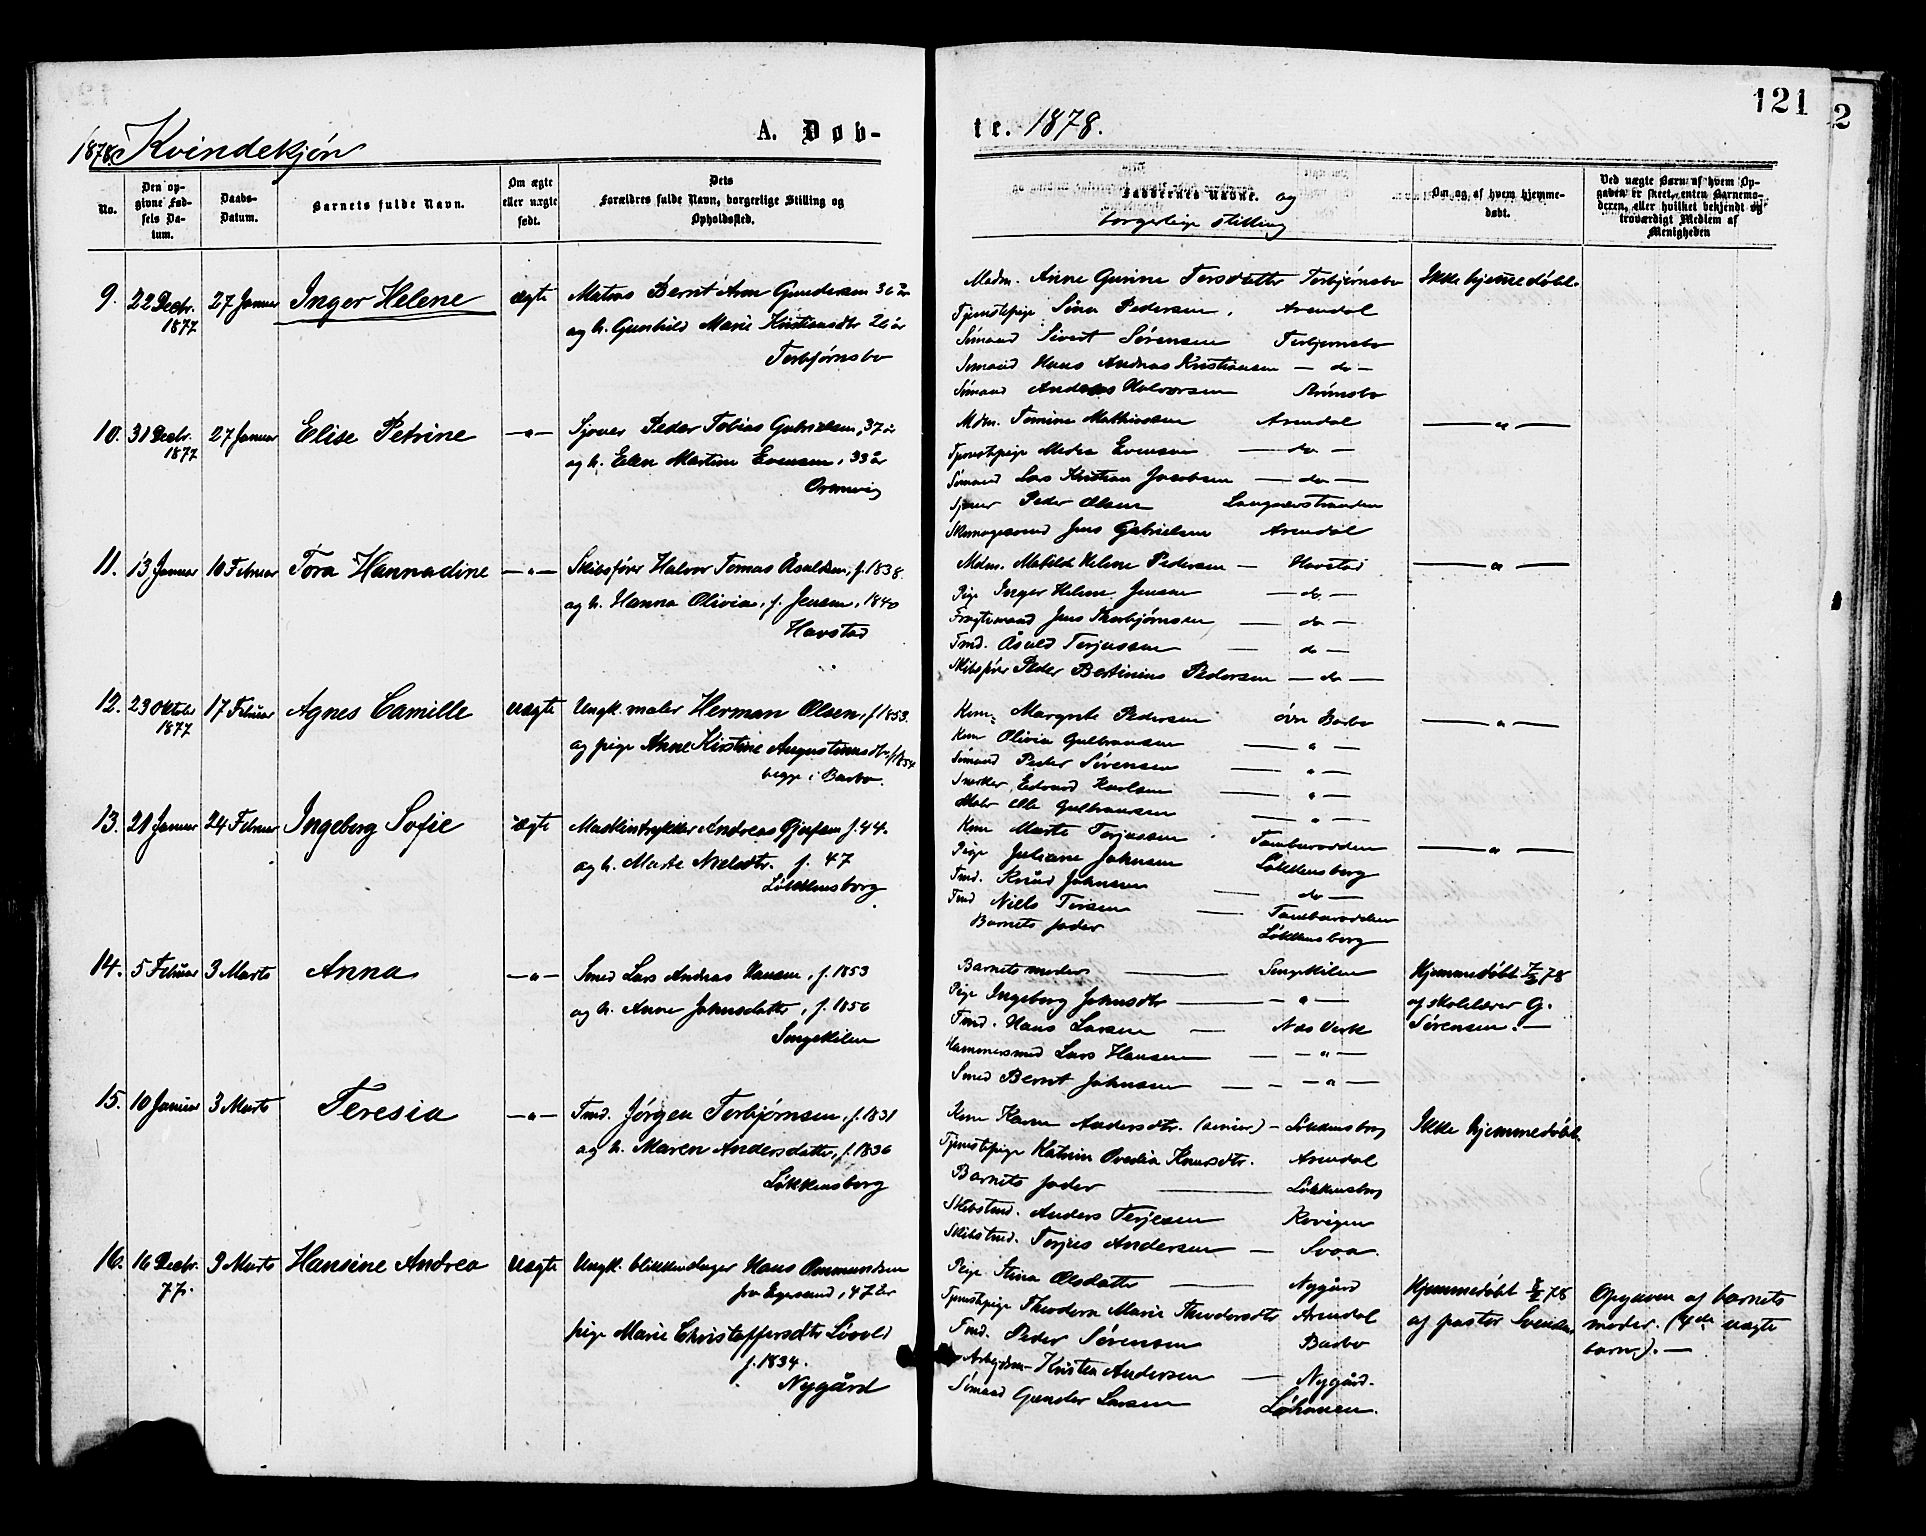 121
2
1878. Kvindekjøn
A. Døb-
te. 1878.
No.
Den op-
givne Fød-
sels Da-
tum.
Daabs-
Datum.
Barnets fulde Navn.
Om ægte
eller uægte
født.
Dets
Forældres fulde Navn, borgerlige Stilling og
Opholdssted.
Faddernes Navne. og
borgerlige stilling
Om og af hvem hjemme-
døbt.
Ved uægte Børn af hvem Op-
gaven er skeet, enten Barnemo-
deren, eller hvilket bekjendt og
troværdigt Medlem af
Menigheden
9. 22 Decbr. 1877 27 Januar Inger Helene ægte
Matros Bernt Aron Gundersen 36 år
og h. Gunhild Marie Kristiansdtr 26 år
Torbjørnsbo
Madm. Anne Gurine Torsdatter Torbjørnsbo
Tjenstepige Sina Pedersen, Arendal
Sømand Sivert Sørensen Torbjørnsbo
Sømand Hans Andreas Kristiansen — do —
Sømand Andreas Halvorsen
Ikke hjemmedøbt.
10. 31 Decbr. 1877 27 Januar Elise Petrine — " —
Sjouer Peder Tobias Gabrielsen, 37 år
og h. Elen Martine Evensen, 33 år
Mdm. Tomine Mathiassen Arendal
Tjenstepige Evensen — do —
Sømand Lars Kristian Jacobsen — do —
Sjouer Peder Olsen Langsæstranden
Skomagersvend Jens Gabrielsen Arendal
— " —
11. 13 Januar 10 Februar Tora Hannadine — " —
Skibsfører Halvor Tomas Åsuldsen, f. 1838.
og h. Hanna Olivia, f. Jensen, 1840
Havstad
Mdm. Matild Helene Pedersen — Havstad
Pige Inger Helene Jensen — do —
Jens Thorbjørnsen — do —
Tmd. Åsuld Terjussen — do —
Skibsfører Peder Bertinius Pedersen — do —
— " —
12. 23 Oktober 1877 17 Februar Agnes Camille uægte
Ungk. maler Herman Olsen, f. 1853.
og pige Anne Kirstine Augustinusdtr f. 1854
begge i Barbo.
Kone Margrete Pedersen øvre Barbo
Kone Olivia Gulbransen — " —
Sømand Peder Sørensen — " —
Snedker Edvard Karlsen — " —
Maler Gulbransen — " —
— " —
13. 21 Januar 24 Februar Ingeborg Sofie ægte
Maskintrykker Andreas f. 44.
og h. Marte Nielsdtr. f. 47
Løkkensborg
Kone Marte Terjussen
Pige Juliane Johnsen Løkkensborg
Tmd. Knud Johnsen — do —
Tmd Niels
Barnets fader Løkkensborg
— " —
14. 5 Februar 3 Marts Anna — " —
Smed Lars Andreas Hansen, f. 1853
og h. Anne Johnsdatter, f. 1850
Songekilen
Barnets moder — Songekilen
Pige Ingeborg Johnsdtr — " —
Tmd. Hans Larsen — Næs Verk
Hammersmed Lars Hansen — " —
Smed Bernt Johnsen — " —
Hjemmedøbt 7/2 78
af skolelærer G.
Sørensen. —
15. 10 Januar 3 Marts Teresia — " —
Tmd. Jørgen Torbjørnsen, f. 1831
og h. Maren Andersdatter, f. 1836
Løkkensborg
Kone Karen Andersdtr. (senior) — Løkkensborg
Tjenstepige Katrine Ovedia Knudsdtr. Arendal
Barnets fader — Løkkensborg
Skibstmd. Anders Terjesen
Skibstmd. Terjus Andersen —
Ikke hjemmedøbt.
16. 16 Decbr. 77. 9 Marts Hansine Andrea uægte
Ungk. blikkenslager Hans Ommundsen
fra Egersund, 47 år
pige Marie Christoffersdtr
f. 1834.
Nygård
Pige Stina Olsdatter — Nygård
Tjenstepige Theodora Marie Theodorsdtr Arendal
Tmd. Peder Sørensen Barbo
Arbejdsm. Kristen Andersen — Nygård.
Sømand Gunder Larsen
Hjemmedøbt 8/2 78
af pastor Svendsen
Opgaven af barnets
moder. (4de uægte
barn). —